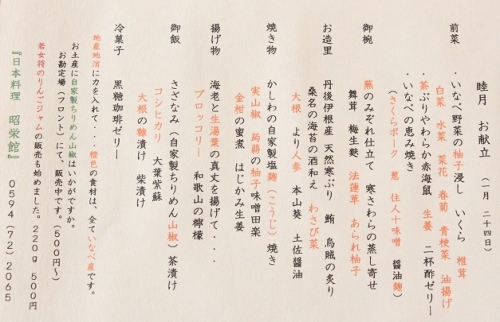 睦月 お献立 (一月 二十四日)
前菜 ・いなべ野菜の柚子浸し いくら 椎茸
白菜 水菜 菜花 春菊 青梗菜 油揚げ
・茶ぶりやわらか赤海鼠 生姜 二杯酢ゼリー
・いなべの恵み焼き
(さくらポーク 葱 住人十味噌 醤油麹)
御椀 蕪のみぞれ仕立て 寒さわらの蒸し寄せ
舞茸 梅生麩 法蓮草 あられ柚子
お造里 丹後伊根産 天然寒ぶり 鮪 烏賊の炙り
桑名の海苔の酒和え わさび菜
大根 より人参 本山葵 土佐醤油
焼き物 かしわの自家製塩麹(こうじ)焼き
実山椒 蒟蒻の柚子味噌田楽
金柑の蜜煮 はじかみ生姜
揚げ物 海老と生湯葉の真丈を揚げて・・・
ブロッコリー 和歌山の檸檬
御飯 さざなみ(自家製ちりめん山椒)茶漬け
コシヒカリ 大葉紫蘇
大根の糠漬け 柴漬け
冷菓子 黒糖珈琲ゼリー
地産地消に力を入れて・・・橙色の食材は、全ていなべ産です。
お土産に自家製ちりめん山椒はいかがですか。
お勘定場(フロント)にて、販売中です。(600円~)
若女将のりんごジャムの販売も始めました。220g 500円
『日本料理 昭栄館』 0594(72)2065